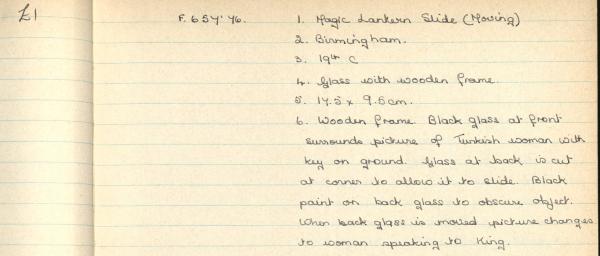 £1 F. 654'76. 1. Magic Lantern Slide (Moving)
2. Birmingham.
3. 19th C
4. Glass with wooden frame.
5. 17.5 x 9.5cm.
6. Wooden frame. Black glass at front
surrounds picture of Turkish woman with
key on ground. Glass at back is cut
at corner to allow it to slide. Black
paint on back glass to obscure object.
When back glass is moved picture changes
to woman speaking to King.